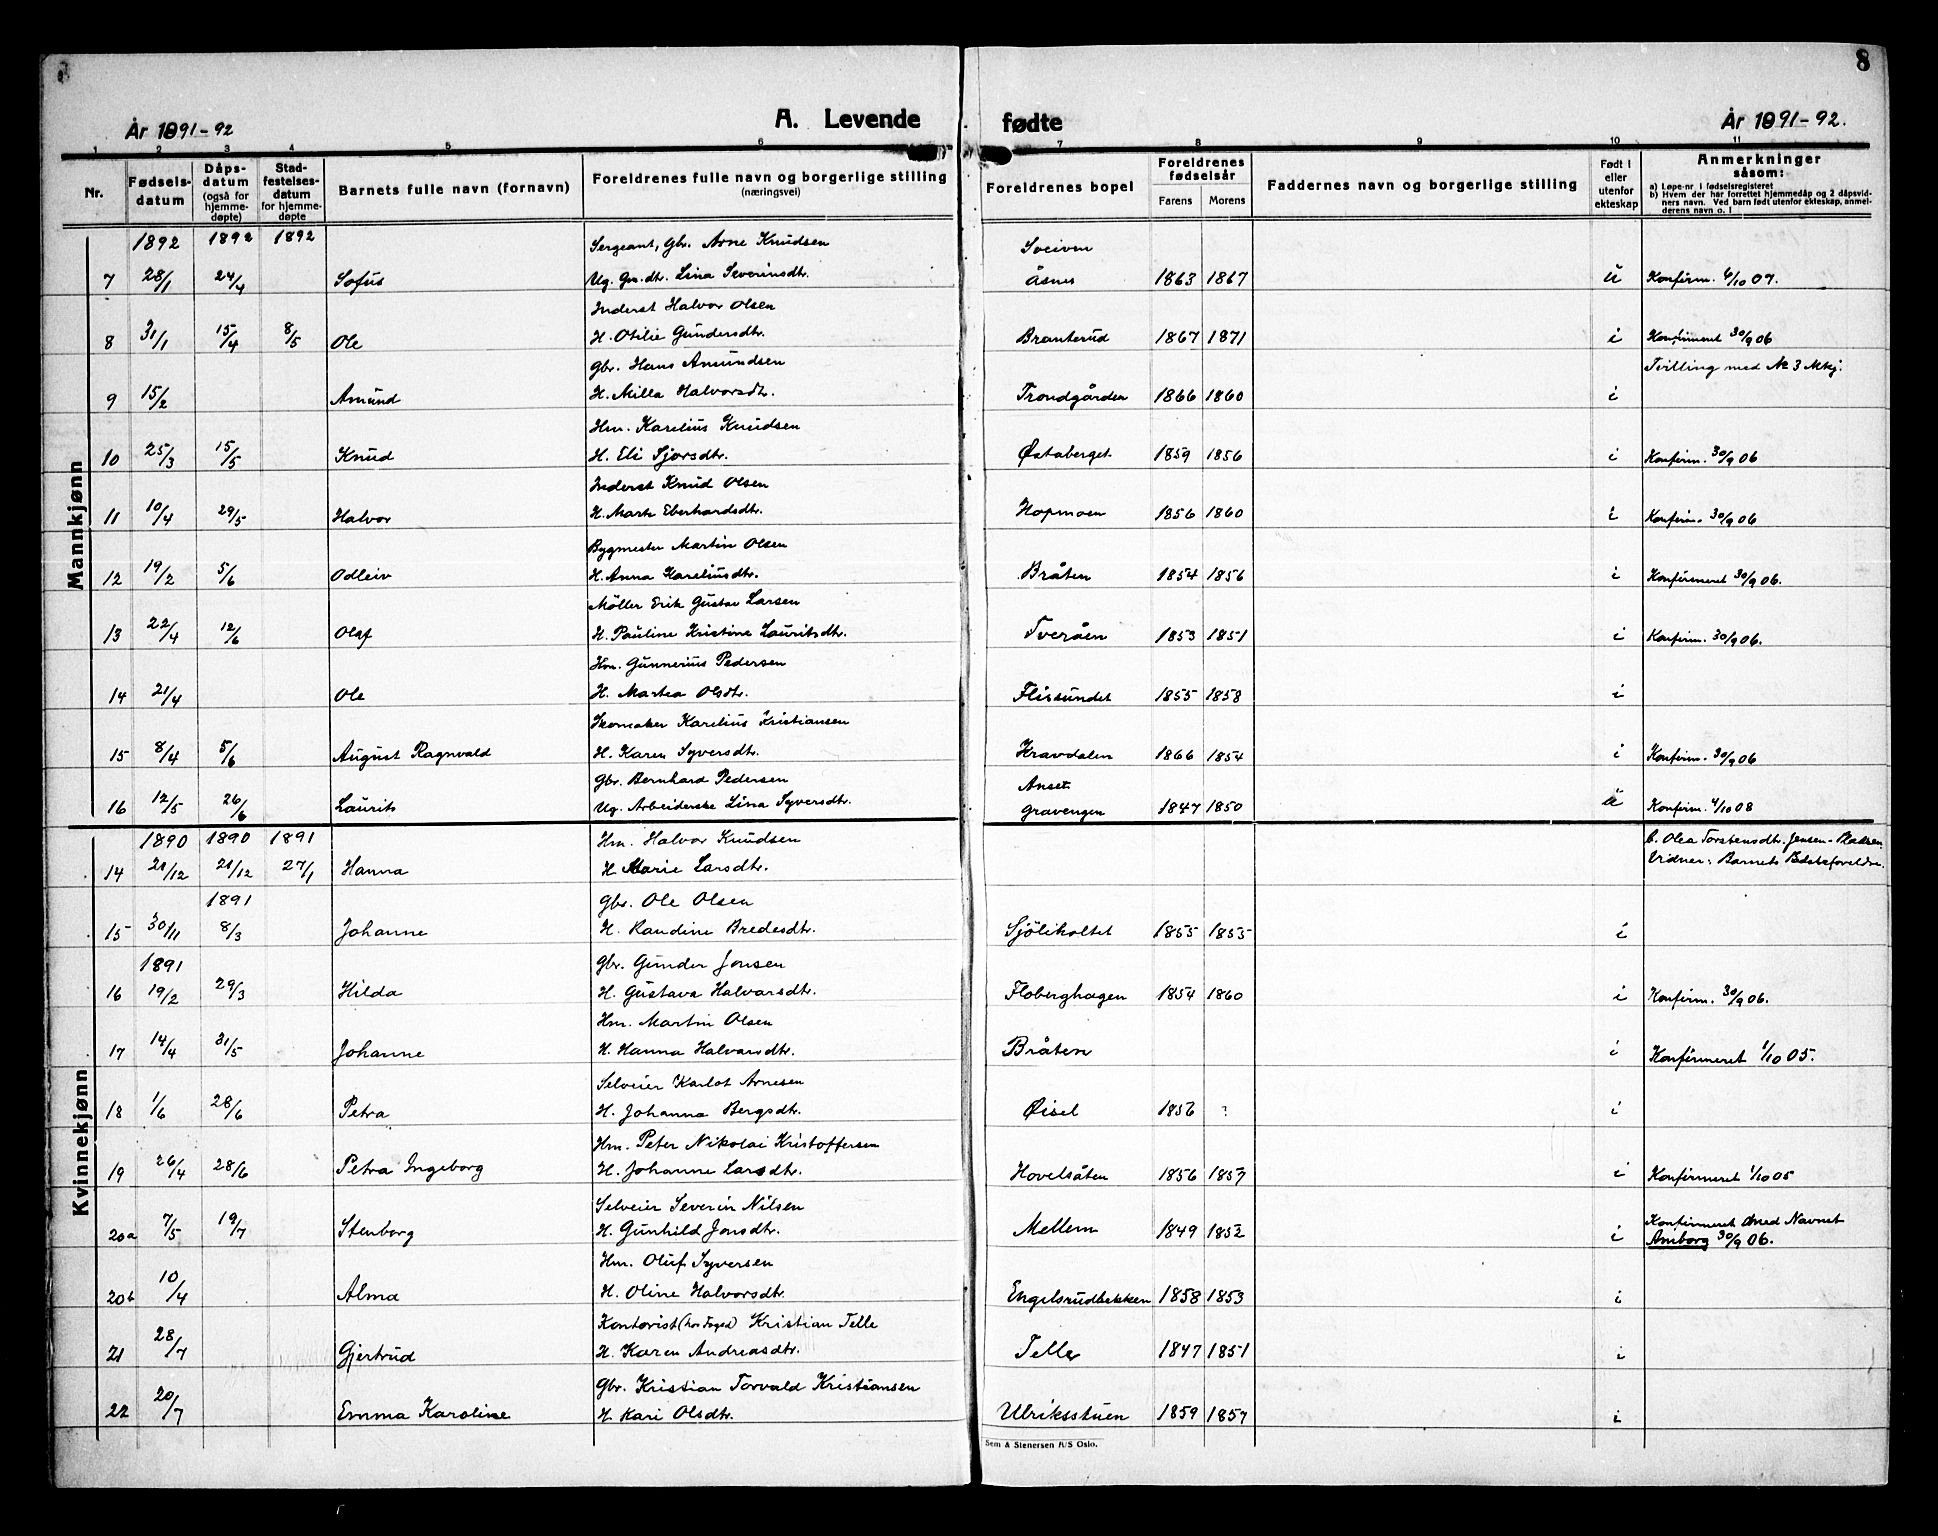 8
År 1891-92
A. Levende
fødte
År 1891-92.
1 2 3 4 5 6 7 8 9 10 11
Nr.
Fødsels-
datum
Dåps-
datum
(også for
hjemme-
døpte)
Stad-
festelses-
datum
for hjemme-
døpte
Barnets fulle navn (fornavn)
Foreldrenes fulle navn og borgerlige stilling
(næringsvei)
Foreldrenes bopel
Foreldrenes
fødselsår
Farens Morens
Faddernes navn og borgerlige stilling
Født i
eller
utenfor
ekteskap
Anmerkninger
såsom:
a) Løpe-nr. i fødselsregisteret
b) Hvem der har forrettet hjemmedåp og 2 dåpsvid-
ners navn. Ved barn født utenfor ekteskap, anmel-
derens navn o. l
Mannkjønn
1892 1892 1892 Sergeant, Gbr. Arne Knudsen Sveiven
7 28/1 24/4 Sofus Ug. Gm.dtr. Lina Severinsdtr. Åsnes 1863 1867 u Konfirm. 6/10 07.
Inderst Halvor Olsen
8 31/1 15/4 8/5 Ole H. Otilie Gundersdtr. Branterud 1867 1871 i Konfirmeret 30/9 06
Gbr. Hans Amundsen Tvilling med No 3 Mkj.
9 15/2 Amund H. Milla Halvorsdtr. Trondgården 1866 1860 i
Hm. Karelius Knudsen
10 25/3 15/5 Knud H. Eli Sjorsdtr. Østaberget 1859 1856 i Konfirm. 30/9 06
Inderst Knud Olsen
11 10/4 29/5 Halvor H. Marte Eberhardsdtr. Hopmoen 1856 1860 i Konfirm. 30/9 06
Bygmester Martin Olsen
12 19/2 5/6 Odleiv H. Anna Kareliusdtr. Bråten 1854 1856 i Konfirmeret 30/9 06.
Möller Erik Gustav Larsen
13 22/4 12/6 Olaf H. Pauline Kristine Lauritsdtr. Tveråen 1853 1851 i Konfirm. 30/9 06.
Hm. Gunnerius Pedersen
14 21/4 Ole H. Martea Olsdtr. Flissundet 1855 1858 i
Skomaker Karelius Kristiansen
15 8/4 5/6 August Ragnvald H. Karen Syversdtr. Kravdalen 1866 1854 i Konfirm. 30/9 06
Gbr. Bernhard Pedersen Anset
16 12/5 26/6 Laurits Ug. Arbeiderske Lina Syversdtr. Gravengen 1847 1850 u Konfirm. 4/10 08
Kvinnekjønn
1890 1890 1891 Hm. Halvor Knudsen b. Olea Torstensdtr. Jensen-
14 21/12 21/12 27/1 Hanna H. Marie Larsdtr. Vidner: Barnets Bedsteforeldre.
1891 Gbr. Ole Olsen
15 30/11 8/3 Johanne H. Randine Bredesdtr. Sjöliholtet 1855 1855 i
1891 Gbr. Gunder Jonsen
16 19/2 29/3 Hilda H. Gustava Halvorsdtr. Floberghagen 1854 1860 i Konfirm. 30/9 06.
Hm. Martin Olsen
17 14/4 31/5 Johanne H. Hanna Halvorsdtr. Bråten i Konfirmeret 1/10 05.
Selveier Karlot Arnesen
18 1/6 28/6 Petra H. Johanna Bergsdtr. Øisel 1856 ? i
Hm. Peter Nikolai Kristoffersen
19 26/4 28/6 Petra Ingeborg H. Johanne Larsdtr. Hovelsåten 1856 1857 i Konfirmeret 1/10 05
Selveier Severin Nilsen Konfirmeret med Navnet
20a 7/5 19/7 Stenborg H. Gunhild Jonsdtr. Mellem 1849 1852 i Amborg 30/9 06.
Hm. Oluf Syversen
20b 10/4 Alma H. Oline Halvorsdtr. Engelsrudbekken 1858 1853 i
Kontorist (hos Foged) Kristian Telle
21 28/7 Gjertrud H. Karen Andreasdtr. Telle 1847 1851 i
Gbr. Kristian Torvald Kristiansen
22 20/7 Emma Karoline H. Kari Olsdtr. Ulriksstuen 1859 1857 i
Sem & Stenersen A/S Oslo.